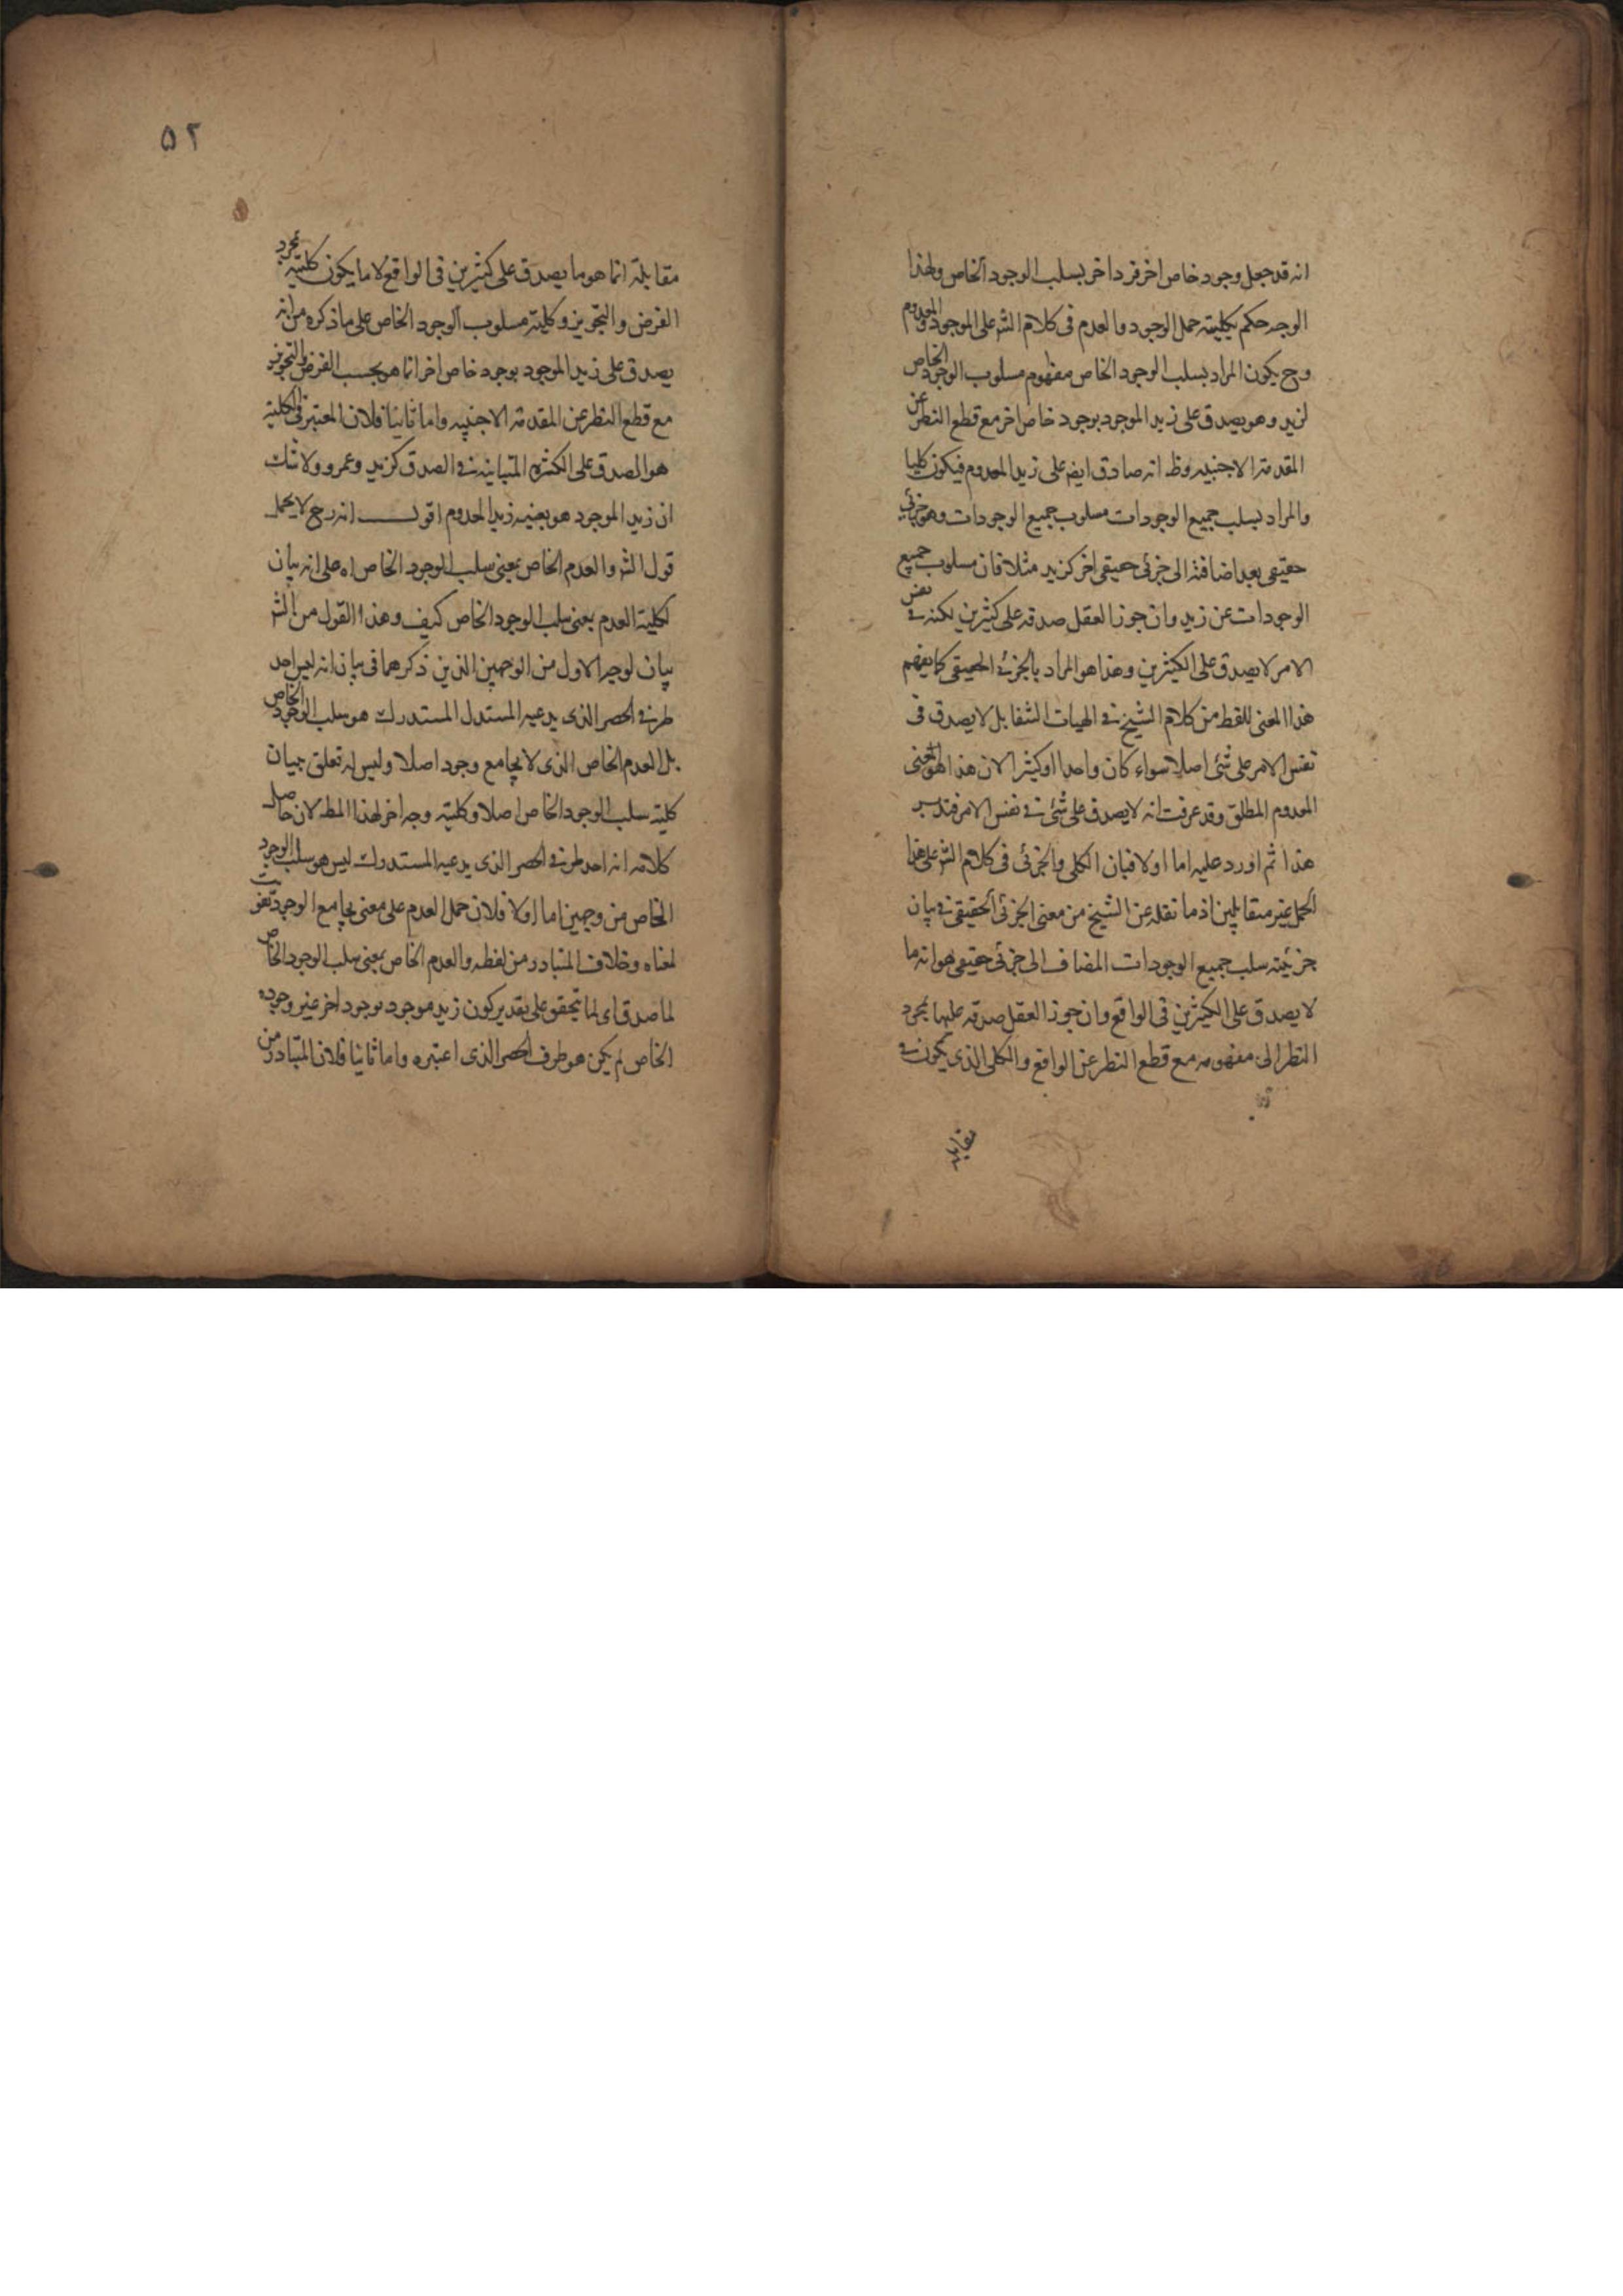 انه قد جعل وجود خاص اخر فردا خر بسلب الوجود الخاص ولهذا
الوجه حكم بكليته حمل الوجود والعدم فى كلام الش على الموجود والمعدوم
وح يكون المراد بسلب الوجود الخاص مفهوم مسلوب الوجود الخاص
لزيد وهو يصدق على زيد الموجود بوجود خاص اخر مع قطع النظر عن
المقدمة الاجنبيه وظ انه صادق ايض على زيد المعدوم فيكون كليا
والمراد بسلب جميع الوجودات مسلوب جميع الوجودات وهو جزئى
حقيقى بعد اضافته الى جزئى حقيقى اخر كزيد مثلا فان مسلوب جميع
الوجودات عن زيد وان جوز العقل صدقه على كثيرين لكنه فى نفس
الامر لا يصدق على الكثيرين وهذا هو المراد بالجزئى الحقيقى كما يفهم
هذا المعنى للفظ من كلام الشيخ فى الهيات الشفا بل لا يصدق فى
نفس الامر على شئ اصلا سواء كان واحدا او كثيرا لان هذا هو معنى
المعدوم المطلق وقد عرفت انه لا يصدق على شئ فى نفس الامر فتدبر
هذا ثم اورد عليه اما اولا فبان الكلى والجزئى فى كلام الش على هذا
الحمل غير متقابلين اذ ما نقله عن الشيخ من معنى الجزئى الحقيقى فى بيان
جزئيته سلب جميع الوجودات المضاف الى جزئى حقيقى هو انه ما
لا يصدق على الكثيرين فى الواقع وان جوز العقل صدقه عليها بمجرد
النظر الى مفهومه مع قطع النظر عن الواقع والكلى الذى يكون فى
مقابلة
٥٢
مقابلة انما هو ما يصدق على كثيرين فى الواقع لا ما يكون كليته بمجرد
الفرض والتجويز وكلية مسلوب الوجود الخاص على ما ذكره من انه
يصدق على زيد الموجود بوجود خاص اخر انما هو بحسب الفرض والتجويز
مع قطع النظر عن المقدمة الاجنبيه واما ثانيا فلان المعتبر فى الكلية
هو الصدق على الكثرة المتباينه فى الصدق كزيد وعمرو ولا شك
ان زيد الموجود هو بعينه زيد المعدوم اقول انه رح لا يحمل
قول الش والعدم الخاص بمعنى سلب الوجود الخاص اه على انه بيان
لكلية العدم بمعنى سلب الوجود الخاص كيف وهذا القول من الش
بيان لوجه الاول من الوجهين الذين ذكرهما فى بيان انه ليس احد
طرفى الحصر الذى يدعيه المستدل المستدرك هو سلب الوجود الخاص
بل العدم الخاص الذى لا يجامع وجود اصلا وليس له تعلق ببيان
كلية سلب الوجود الخاص اصلا وكليته وجه اخر لهذا المط لان حاصل
كلامه انه احد طرفى الحصر الذى يدعيه المستدرك ليس هو سلب الوجود
الخاص من وجهين اما اولا فلان حمل العدم على معنى يجامع الوجود تفويت
لمعناه وخلاف المتبادر من لفظه والعدم الخاص بمعنى سلب الوجود الخاص
لما صدق اى لما تحقق على تقدير كون زيد موجود بوجود اخر غير وجوده
الخاص لم يكن هو طرف الحصر الذى اعتبره واما ثانيا فلان المتبادر من